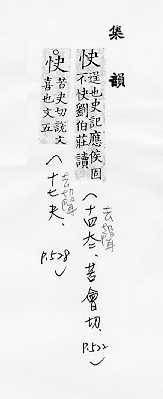 集韻
快 逞也史記應侯固
不快劉伯莊讀
去聲
(十四太、苦會切、
P.522)
。快 苦夬切說文
喜也文五
去聲
(十七夬、
P.528)